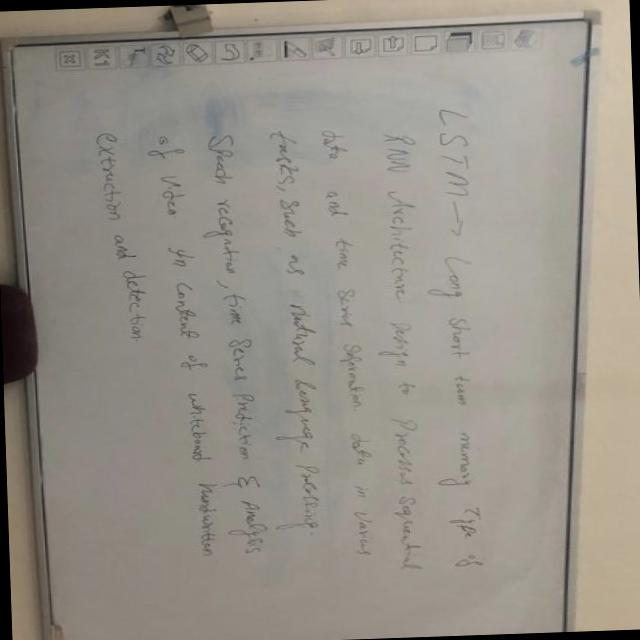 LSTM → Long short term memory Type of
RNN Architecture Design to Process sequential
data and time series information data in various
tasks, such as natural language Processing.
Speech recognition, time series Prediction & Analysis
of Video in context of whiteboard handwritten
extraction and detection